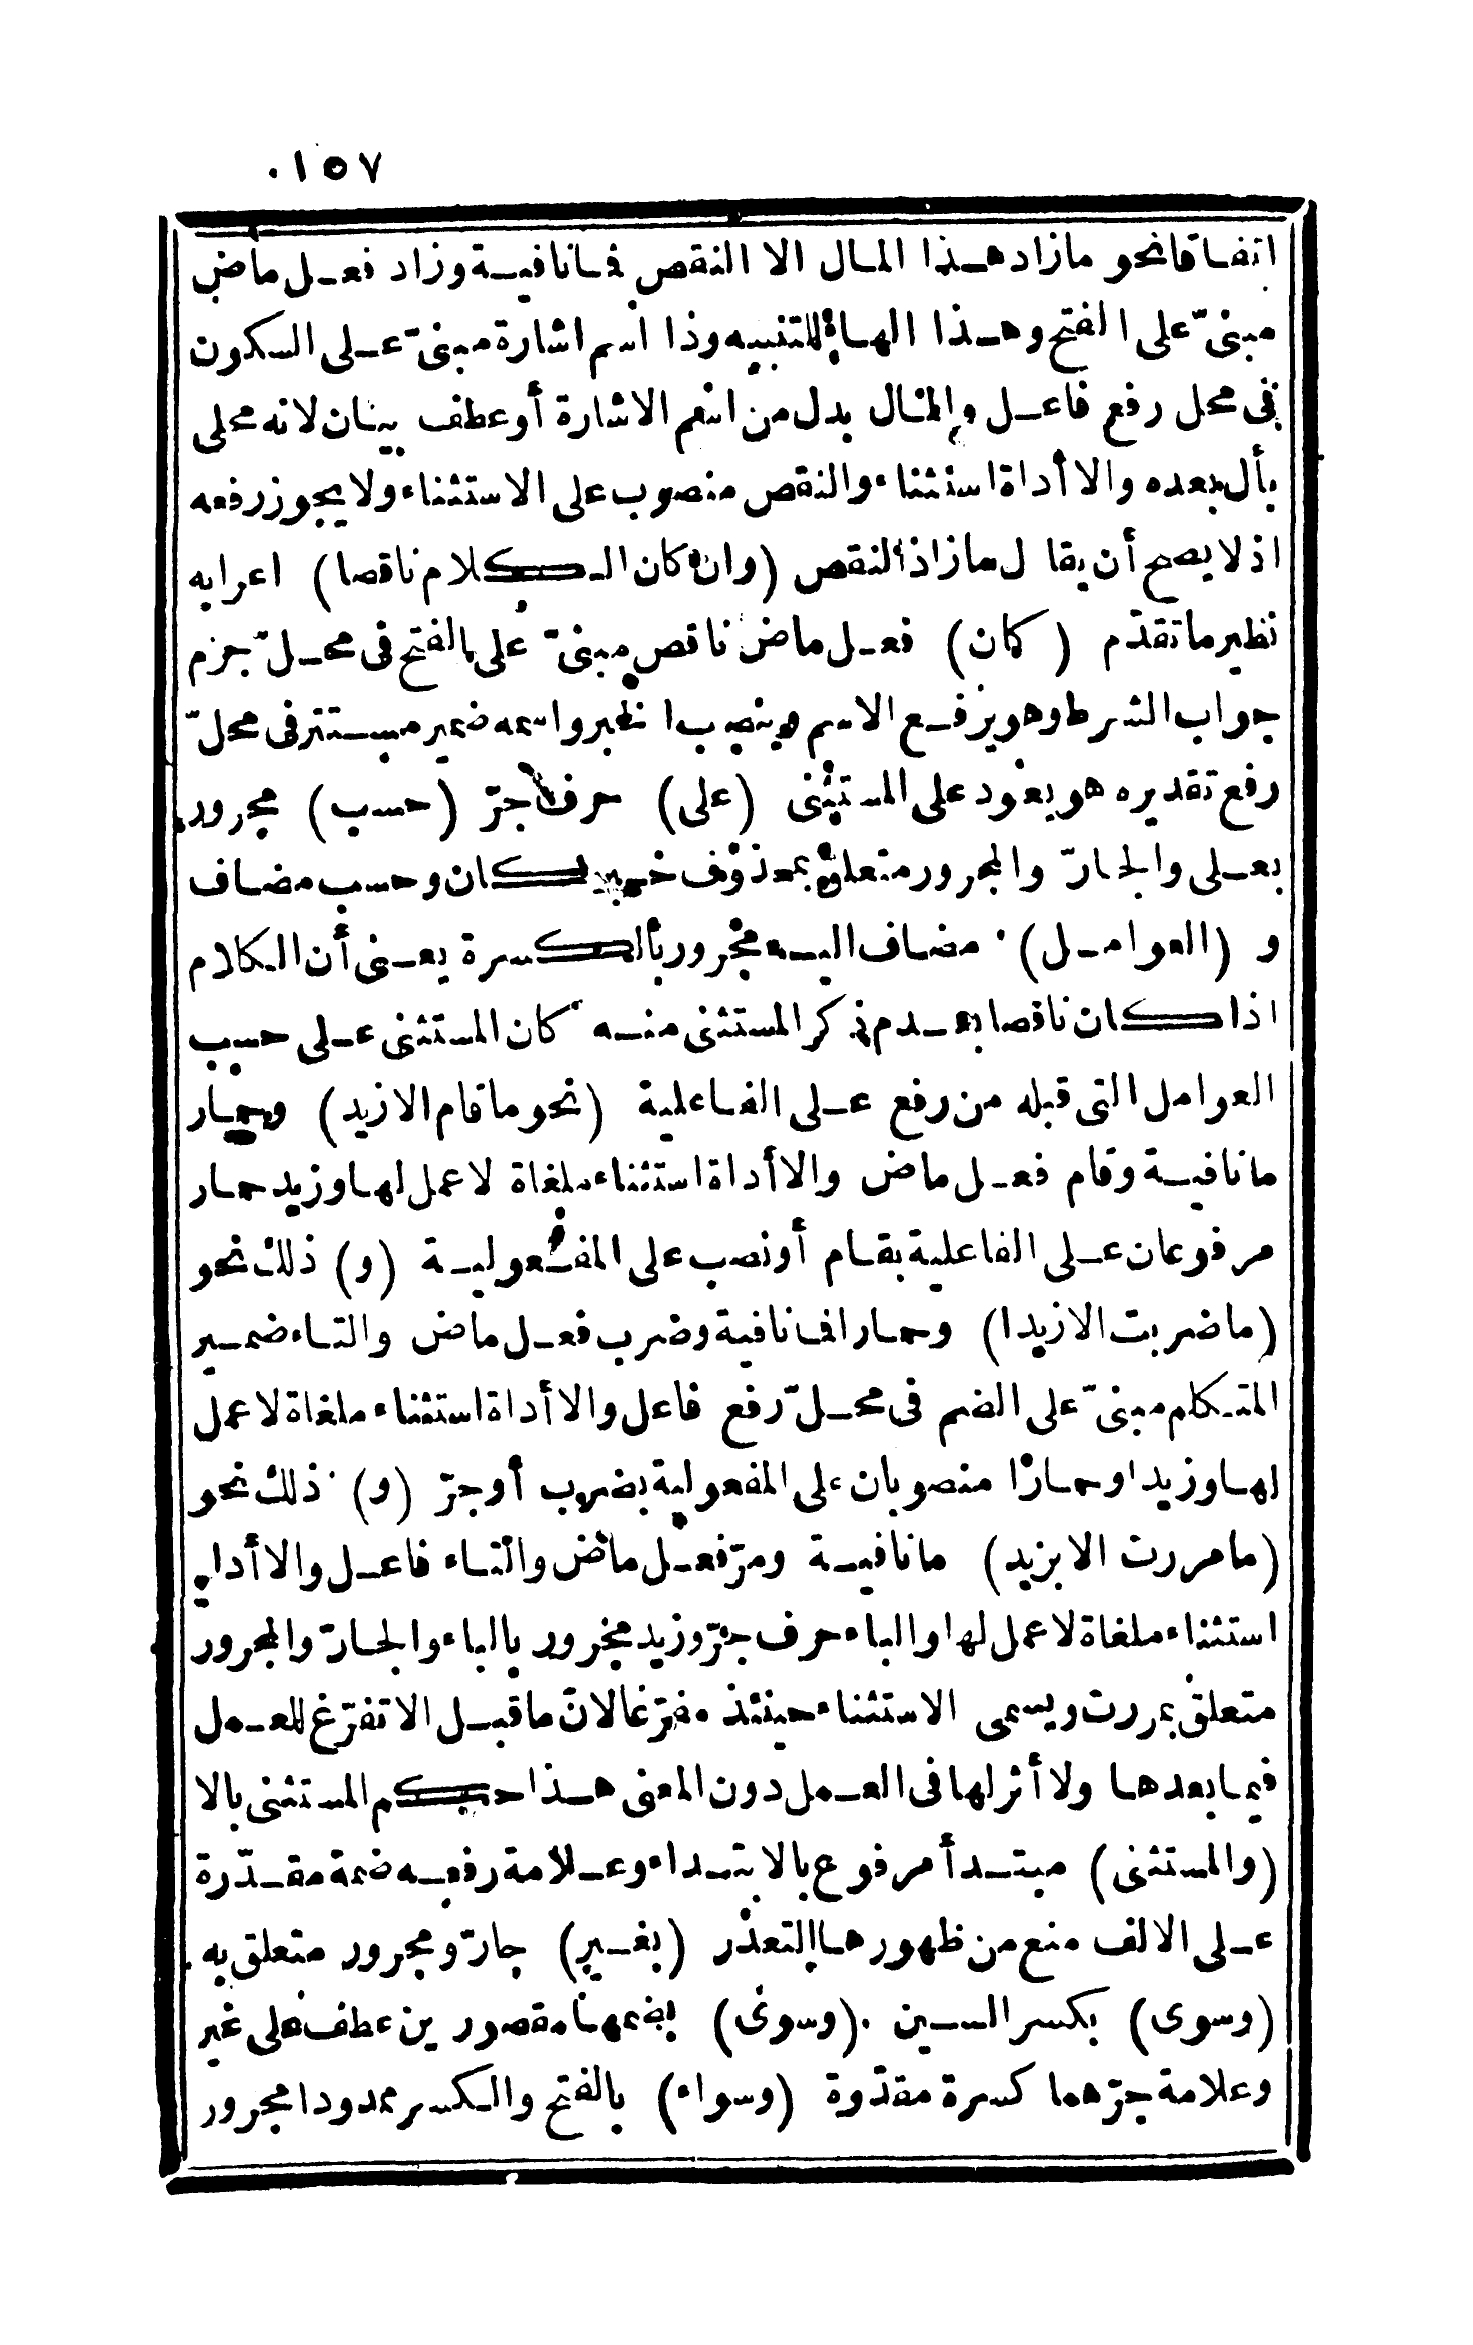 ١٥٧
اتفاقا نحو مازاد هذا المال الا النقص فما نافية وزاد فعل ماض
مبنىّ على الفتح وهذا الهاء للتنبيه وذا اسم اشارة مبنىّ على السكون
فى محل رفع فاعل والمال بدل من اسم الاشارة أو عطف بيان لانه محلى
بأل بعده والا أداة استثناء والنقص منصوب على الاستثناء ولا يجوز رفعه
اذ لا يصح أن يقال مازاد النقص (وان كان الكلام ناقصا) اعرابه
نظير ما تقدّم (كان) فعل ماض ناقص مبنىّ على الفتح فى محلّ جزم
جواب الشرط وهو يرفع الاسم وينصب الخبر واسمه ضمير مستتر فى محلّ
رفع تقديره هو يعود على المستثنى (على) حرف جرّ (حسب) مجرور
بعلى والجارّ والمجرور متعلق بمحذوف خبر لكان وحسب مضاف
و (العوامل) مضاف اليه مجرور بالكسرة يعنى أن الكلام
اذا كان ناقصا بعدم ذكر المستثنى منه كان المستثنى على حسب
العوامل التى قبله من رفع على الفاعلية (نحو ما قام الا زيد) وحمار
ما نافية وقام فعل ماض والا أداة استثناء ملغاة لا عمل لها وزيد حمار
مرفوعان على الفاعلية بقام أو نصب على المفعولية (و) ذلك نحو
(ما ضربت الا زيدا) وحمارا فما نافية وضرب فعل ماض والتاء ضمير
المتكلم مبنىّ على الضم فى محلّ رفع فاعل والا أداة استثناء ملغاة لا عمل
لها وزيدا وحمارا منصوبان على المفعولية بضرب أو جرّ (و) ذلك نحو
(ما مررت الا بزيد) ما نافية ومرّ فعل ماض والتاء فاعل والا أداة
استثناء ملغاة لا عمل لها والباء حرف جرّ وزيد مجرور بالباء والجارّ والمجرور
متعلق بمررت ويسمى الاستثناء حينئذ مفرّغا لانّ ما قبل الا تفرّغ للعمل
فيما بعدها ولا أثر لها فى العمل دون المعنى هذا حكم المستثنى بالا
(والمستثنى) مبتدأ مرفوع بالابتداء وعلامة رفعه ضمة مقدّرة
على الالف منع من ظهورها التعذر (بغير) جارّ ومجرور متعلق به
(وسوى) بكسر السين (وسوى) بضمها مقصورين عطف على غير
وعلامة جرّهما كسرة مقدّرة (وسواء) بالفتح والكسر ممدودا مجرور